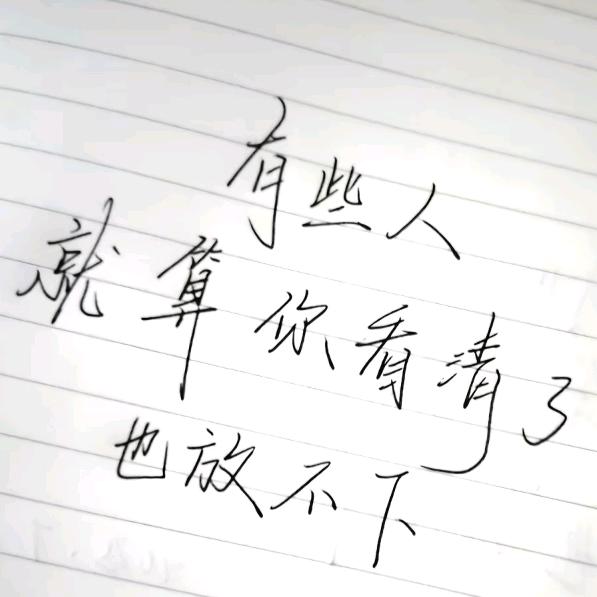 有些人
就算你看清了
也放不下